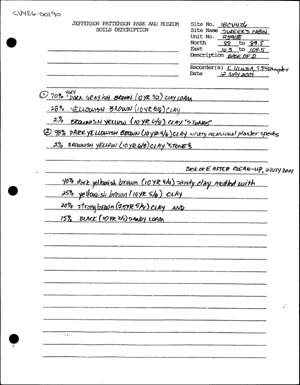 CV426-00190
JEFFERSON PATTERSON PARK AND MUSEUM
SOILS DESCRIPTION
Site No. 18CV426
Site Name SUKEEK'S CABIN
Unit No.
North 88 to 89.5
East 103 to 104.5
Description BASE OF D
Recorder(s) E. UUNILA,
Date 12 JULY 2001
① 70% VERY DARK GRAYISH BROWN (10YR 3/2) CLAY LOAM
28% YELLOWISH BROWN (10YR 5/8) CLAY
2% BROWNISH YELLOW (10YR 6/8) CLAY "STONES"
② 98% DARK YELLOWISH BROWN (10YR 4/6) CLAY w/very occasional plaster specks
2% BROWNISH YELLOW (10YR 6/8) CLAY "STONES"
BASE OF E AFTER CLEAN-UP, JULY 2001
40% dark yellowish brown (10YR 4/4) sandy clay mottled with
25% yellowish brown (10YR 5/6) CLAY
20% strong brown (7.5YR 5/6) CLAY AND
15% BLACK (10YR 2/1) SANDY LOAM